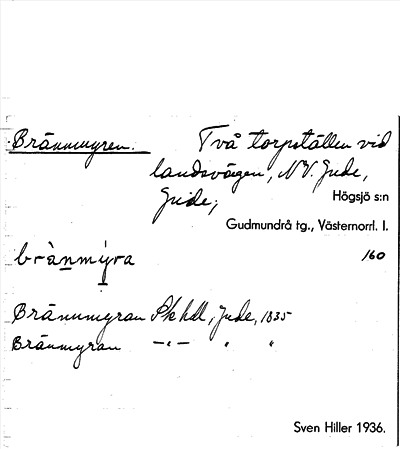 Brännmyren. Två torpställen vid
landsvägen, NV. Jude,
Jude; Högsjö s:n
Gudmundrå tg., Västernorrl. l.
brànmýra 160
Brännmyran Skhdl, Jude, 1835
Brännmyran —"— " "
Sven Hiller 1936.